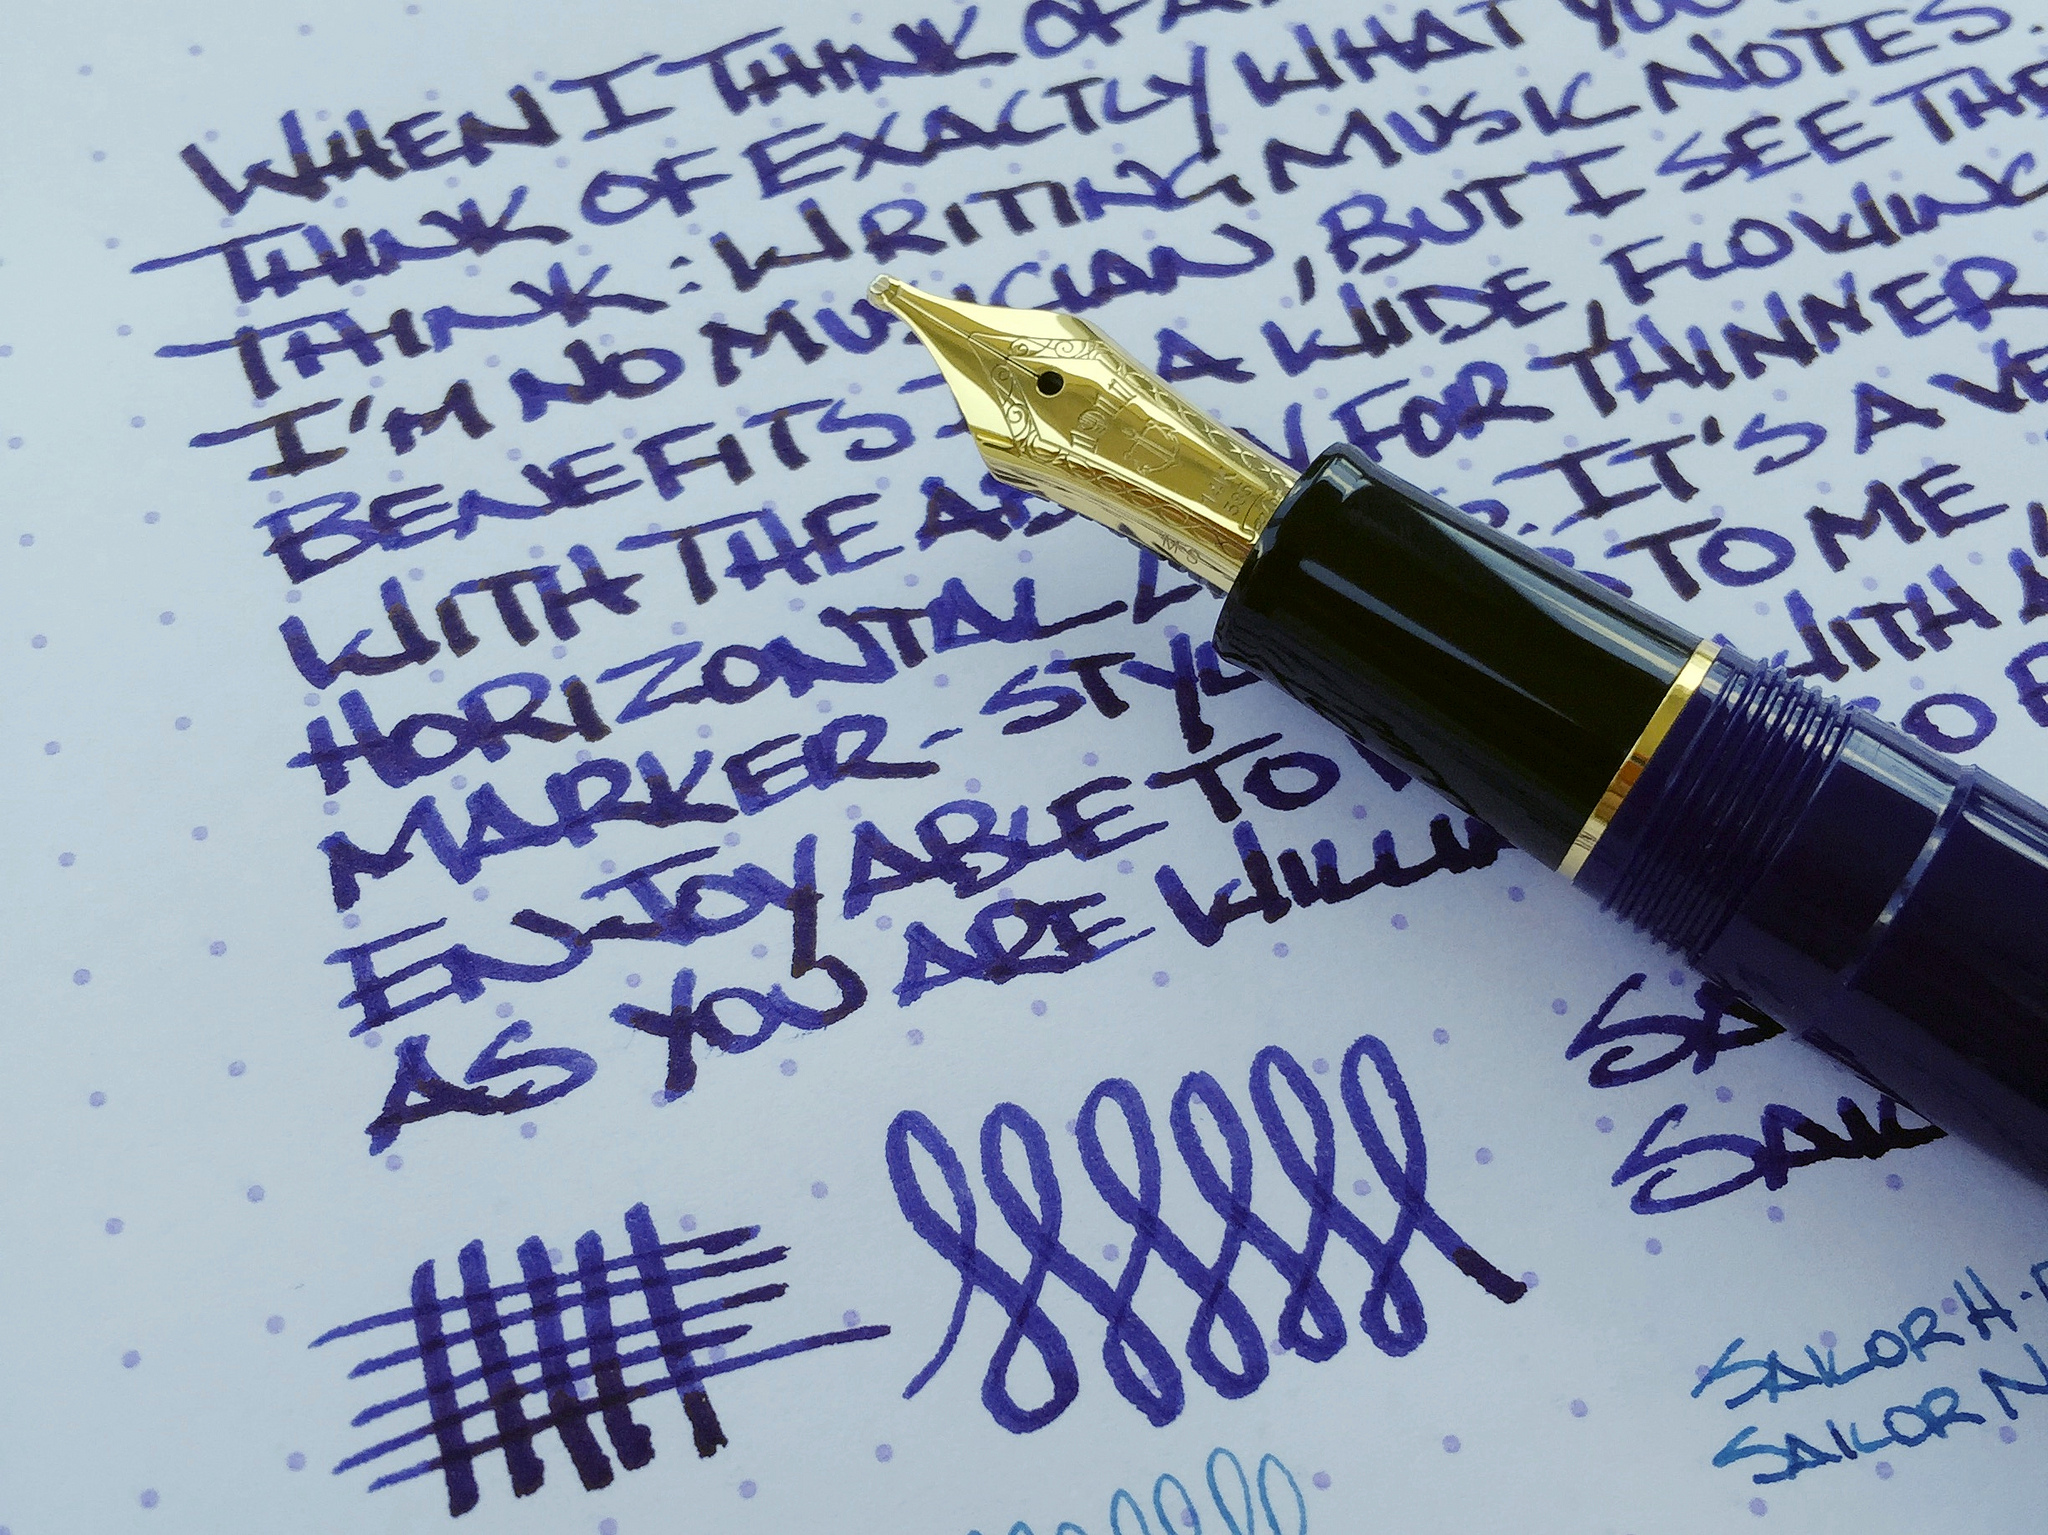 WHEN I THINK OF
THINK OF EXACTLY WHAT YOU
THINK: WRITING MUSIC NOTES.
I'M NO MUSICIAN, BUT I SEE THE
BENEFITS A WIDE, FLOWING
WITH THE FOR THINNER
HORIZONTAL IT'S A
MARKER-STYLE TO ME
ENJOYABLE TO WITH
AS YOU ARE
SAILOR H
SAILOR
1911
14K
585